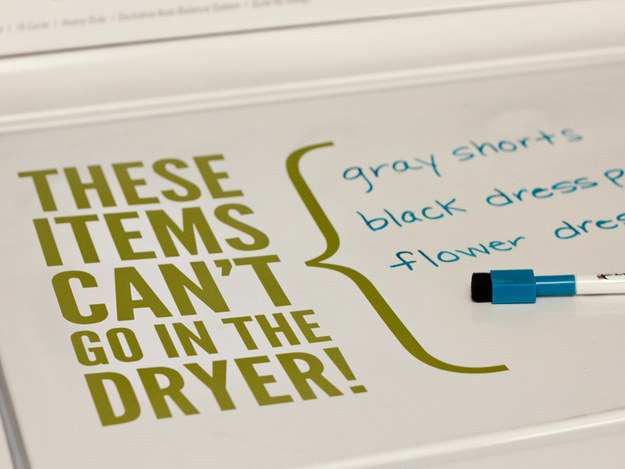 / 15 Cycles / Heavy Duty / Exclusive Auto-Balance System / Quiet By Design
THESE
ITEMS
CAN'T
GO IN THE
DRYER!
gray shorts
black dress
flower